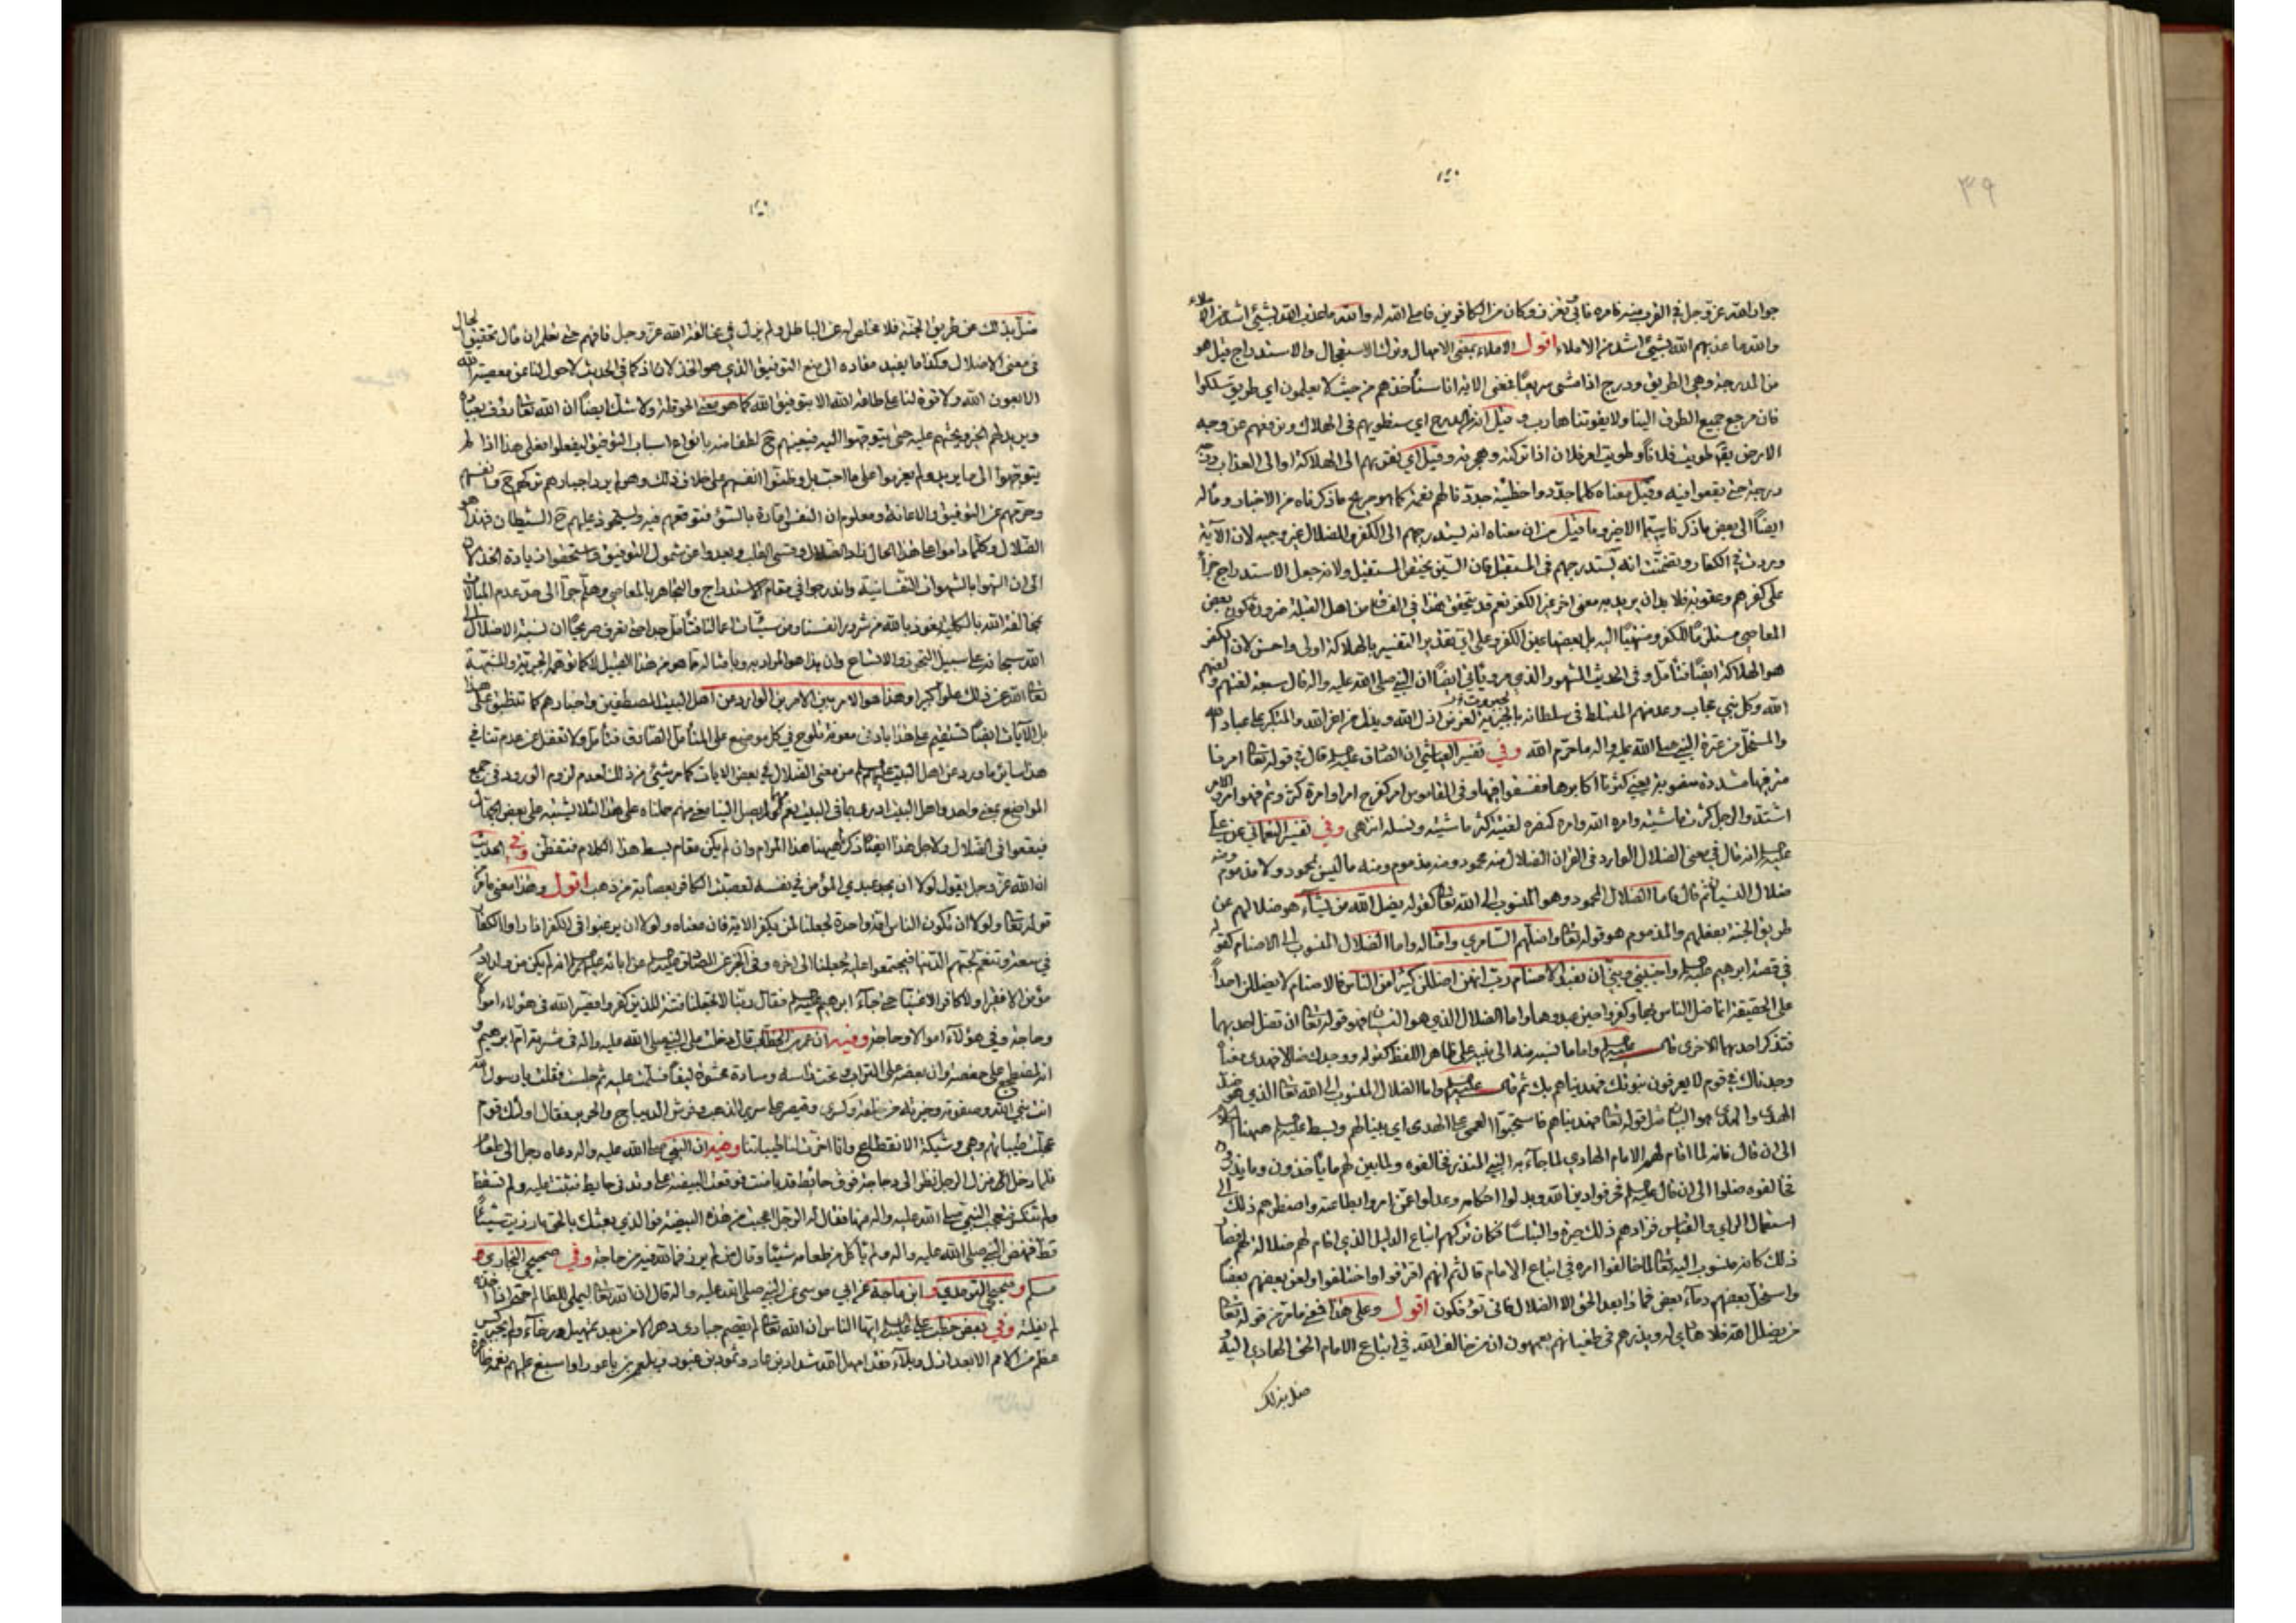 ٣٩
جواب الله عز وجل في القرب منه فامره فاني تغرغر وكان من الكافرين فاملى الله له والله ما عذب الله بشيء اشد من الاملاء
والله ما عذبهم الله بشيء اشد من الاملاء اقول الاملاء بمعنى الامهال وترك الاستعجال والاستدراج قيل هو
من المدرجة وهي الطريق ودرج اذا مشى سريعًا فمعنى الاية انا سنأخذهم من حيث لا يعلمون اي طريق سلكوا
فان مرجع جميع الطرق الينا ولا يفوتنا هارب وقيل انه من الدرج اي سنطويهم في الهلاك ونرفعهم عن وجه
الارض يقال طويت فلانًا وطويت امر فلان اذا تركته وهجرته وقيل اي نقربهم الى الهلاكة او الى العذاب درجة
درجة حتى يقعوا فيه وقيل معناه كلما جددوا خطيئة جددنا لهم نعمة كما هو صريح ما ذكرناه من الاخبار ومآله
ايضًا الى بعض ما ذكر لا سيما الاخير وما قيل من ان معناه انه يستدرجهم الى الكفر والضلال غير وجيه لان الآية
وردت في الكفار وتضمنت انه يستدرجهم في المستقبل فان السين يختص المستقبل ولانه جعل الاستدراج جزاءً
على كفرهم وعقوبة فلا بد ان يريد به معنى اخر غير الكفر نعم قد يتحقق هذا في الفساق من اهل القبلة ضرورة كون بعض
المعاصي مستلزمًا للكفر ومنتهيًا اليه بل بعضها عين الكفر وعلى اي تقدير التفسير بالهلاكة اولى واحسن لان الكفر
هو الهلاكة ايضًا فتأمل وفي الحديث المشهور الذي مر ويأتي ايضًا ان النبي صلى الله عليه واله قال سبعة لعنتهم ولعنهم
الله وكل نبي مجاب وعد منهم المتسلط في سلطانه بالجبرية ليعز من اذل الله ويذل من اعز الله والمتكبر على عباد الله
والمستحل من عترة النبي صلى الله عليه واله ما حرم الله وفي تفسير العياشي ان الصادق عليه السلام قال في قوله تعالى امرنا
مترفيها مشددة منصوبة يعني كثرنا اكابرها ففسقوا فيها وفي القاموس امر كفرح امرا وامرة كثر وتم فهو امر والامر
اشتد والرجل كثرت ماشيته وامره الله وامره كنصره لغية كثر ماشيته ونسله انتهى وفي تفسير النعماني عن علي
عليه السلام انه قال في معنى الضلال الوارد في القران الضلال منه محمود ومنه مذموم ومنه ما ليس بمحمود ولا مذموم ومنه
ضلال النسيان ثم قال فاما الضلال المحمود وهو المنسوب الى الله تعالى كقوله يضل الله من يشآء هو ضلالهم عن
طريق الجنة بفعلهم والمذموم هو قوله تعالى واضلهم السامري وامثاله واما الضلال المنسوب الى الاصنام كقوله
في قصة ابرهيم عليه السلام واجنبني وبنيّ ان نعبد الاصنام رب انهن اضللن كثيرًا من الناس فالاصنام لا يضللن احدًا
على الحقيقة انما ضل الناس بها وكفروا حين عبدوها واما الضلال الذي هو النسيان فهو قوله تعالى ان تضل احديهما
فتذكر احديهما الاخرى قال عليه السلام واما ما نسبه منه الى نبيه على ظاهر اللفظ كقوله ووجدك ضالا فهدى معناه
وجدناك في قوم لا يعرفون نبوتك فهديناهم بك ثم قال عليه السلام واما الضلال المنسوب الى الله تعالى الذي هو ضد
الهدى والهدى هو البيان مثل قوله تعالى فهديناهم فاستحبوا العمى على الهدى اي بينا لهم وبسط عليه السلام ههنا الكلام
الى ان قال فانه لما اقام لهم الامام الهادي لما جآء به النبي المنذر فخالفوه ولما بين لهم ما يأخذون وما يذرون
فخالفوه ضلوا الى ان قال عليه السلام فحرفوا دين الله وبدلوا احكامه وعدلوا عمن امروا بطاعته واضطرهم ذلك الى
استعمال الراي والقياس فزادهم ذلك حيرة والتباسًا فكان تركهم اتباع الدليل الذي اقام لهم ضلالة لهم فصار
ذلك كانه منسوب اليه تعالى لما خالفوا امره في اتباع الامام قال ثم انهم افترقوا واختلفوا ولعن بعضهم بعضًا
واستحل بعضهم دمآء بعض فماذا بعد الحق الا الضلال فانى تؤفكون اقول وعلى هذا فمعنى ما مر من قوله تعالى
من يضلل الله فلا هادي له ويذرهم في طغيانهم يعمهون ان من خالف الله في اتباع الامام الحق الهادي اليه
ضل بذلك
ضل بذلك عن طريق الجنة فلا مخلص له عن الباطل ولم يزل في مخالفة الله عز وجل فافهم حتى تعلم ان مآل تحقيق الحال
في معنى الاضلال وكذا ما يفيد مفاده الى منع التوفيق الذي هو الخذلان اذ كما في الحديث لا حول لنا عن معصية الله
الا بعون الله ولا قوة لنا على طاعة الله الا بتوفيق الله كما هو معنى الحوقلة ولا شك ايضًا ان الله تعالى
ويريد لهم الخير ويحثهم عليه حتى يتوجهوا اليه فيعينهم ح لطفا منه بانواع اسباب التوفيق ليفعلوا فعلى هذا اذا لم
يتوجهوا الى ما يريد ولم يعزموا على ما احب بل وطنوا انفسهم على خلاف ذلك وهو لم يرد اجبارهم تركهم ح وانفسهم
وحرمهم عن التوفيق والاعانة ومعلوم ان النفس امارة بالسوء فتوقعهم فيه ويستحوذ عليهم ح الشيطان فهذا هو
الضلال وكلما داموا على هذا الحال زاد الضلال وقسى القلب وبعدوا عن شمول التوفيق واستحقوا زيادة الخذلان
الى ان التهوا بالشهوات النفسانية واندرجوا في مقام الاستدراج والتجاهر بالمعاصي وهلم جرا الى حد عدم المبالات
بمخالفة الله بالكلية نعوذ بالله من شرور انفسنا ومن سيئات اعمالنا فتأمل جدا حتى تعرف صريحًا ان نسبة الاضلال الى
الله سبحانه على سبيل التجوز والاتساع وان هذا هو المراد به وبامثاله مما هو من هذا القبيل لا كما توهمه الجبرية والمشبهة
تعالى الله عن ذلك علوا كبيرا وهذا هو الامر بين الامرين الوارد من اهل البيت المصطفين واخبارهم كما تنطبق على هذا
بل الآيات ايضًا تستقيم على هذا بادنى معونة تلوح في كل موضع على المتأمل الصادق فتأمل ولا تغفل عن عدم تنافي
هذا سائر ما ورد عن اهل البيت عليهم السلام من معنى الضلال في بعض الايات كما مر شيء من ذلك لعدم لزوم الورود في جميع
المواضع بمعنى واحد واهل البيت ادرى بما في البيت نعم ما لم يصل الينا معنى منهم حملناه على هذا لئلا يشتبه على بعض الجهال
فيقعوا في الضلال ولاجل هذا ايضًا ذكرنا ههنا هذا المرام وان لم يكن مقام بسط هذا الكلام فتفطن وفي الحديث
ان الله عز وجل يقول لولا ان يجد عبدي المؤمن في نفسه لعصبت الكافر بعصابة من ذهب اقول وهذا معنى ما مر من
قوله تعالى ولولا ان يكون الناس امة واحدة لجعلنا لمن يكفر الاية فان معناه ولولا ان يرغبوا في الكفر اذا راوا الكفار
في سعة وتنعم لحبهم الدنيا فيجتمعوا عليه لجعلنا الى اخره وفي الخبر عن الصادق عليه السلام عن ابائه عليهم السلام انه لم يكن من ولد ادم
مؤمن الا فقيرا ولا كافر الا غنيا حتى جآء ابرهيم عليه السلام فقال ربنا لا تجعلنا فتنة للذين كفروا فصير الله في هؤلاء اموالا
وحاجة وفي هؤلآء اموالا وحاجة وفيه ان عمر بن الخطاب قال دخلت على النبي صلى الله عليه واله في مشربة ام ابرهيم و
انه لمضطجع على خصفة وان بعضه على التراب وتحت راسه وسادة محشوة ليفًا فسلمت عليه ثم جلست فقلت يا رسول الله
انت نبي الله وصفوته وخيرته من خلقه وكسرى وقيصر على سرير الذهب وفرش الديباج والحرير فقال اولئك قوم
عجلت طيباتهم وهي وشيكة الانقطاع وانما اخرت لنا طيباتنا وفيه ان النبي صلى الله عليه واله دعاه رجل الى طعام
فلما دخل الى منزل الرجل نظر الى دجاجة فوق حائط قد باضت فوقعت البيضة على وتد في حايط فثبتت عليه ولم تسقط
ولم تنكسر فتعجب النبي صلى الله عليه واله منها فقال له الرجل اعجبت من هذه البيضة فو الذي بعثك بالحق ما رزيت شيئًا
قط فنهض النبي صلى الله عليه واله ولم يأكل من طعامه شيئا وقال من لم يرز فما لله فيه من حاجة وفي صحيحي البخاري و
مسلم وصحيحي الترمذي وابن ماجة عن ابي موسى عن النبي صلى الله عليه واله قال ان الله تعالى ليملي للظالم حتى اذا اخذه
لم يفلته وفي بعض خطب علي عليه السلام ايها الناس ان الله تعالى لم يقصم جباري دهر الا من بعد تمهيل ورخآء ولم يجبر كسر
عظم من الامم الا بعد ازل وبلآء فقد امهل الله شداد بن عاد وثمود بن عبود وبلعم بن باعور واسبغ عليهم نعمه ظاهرة